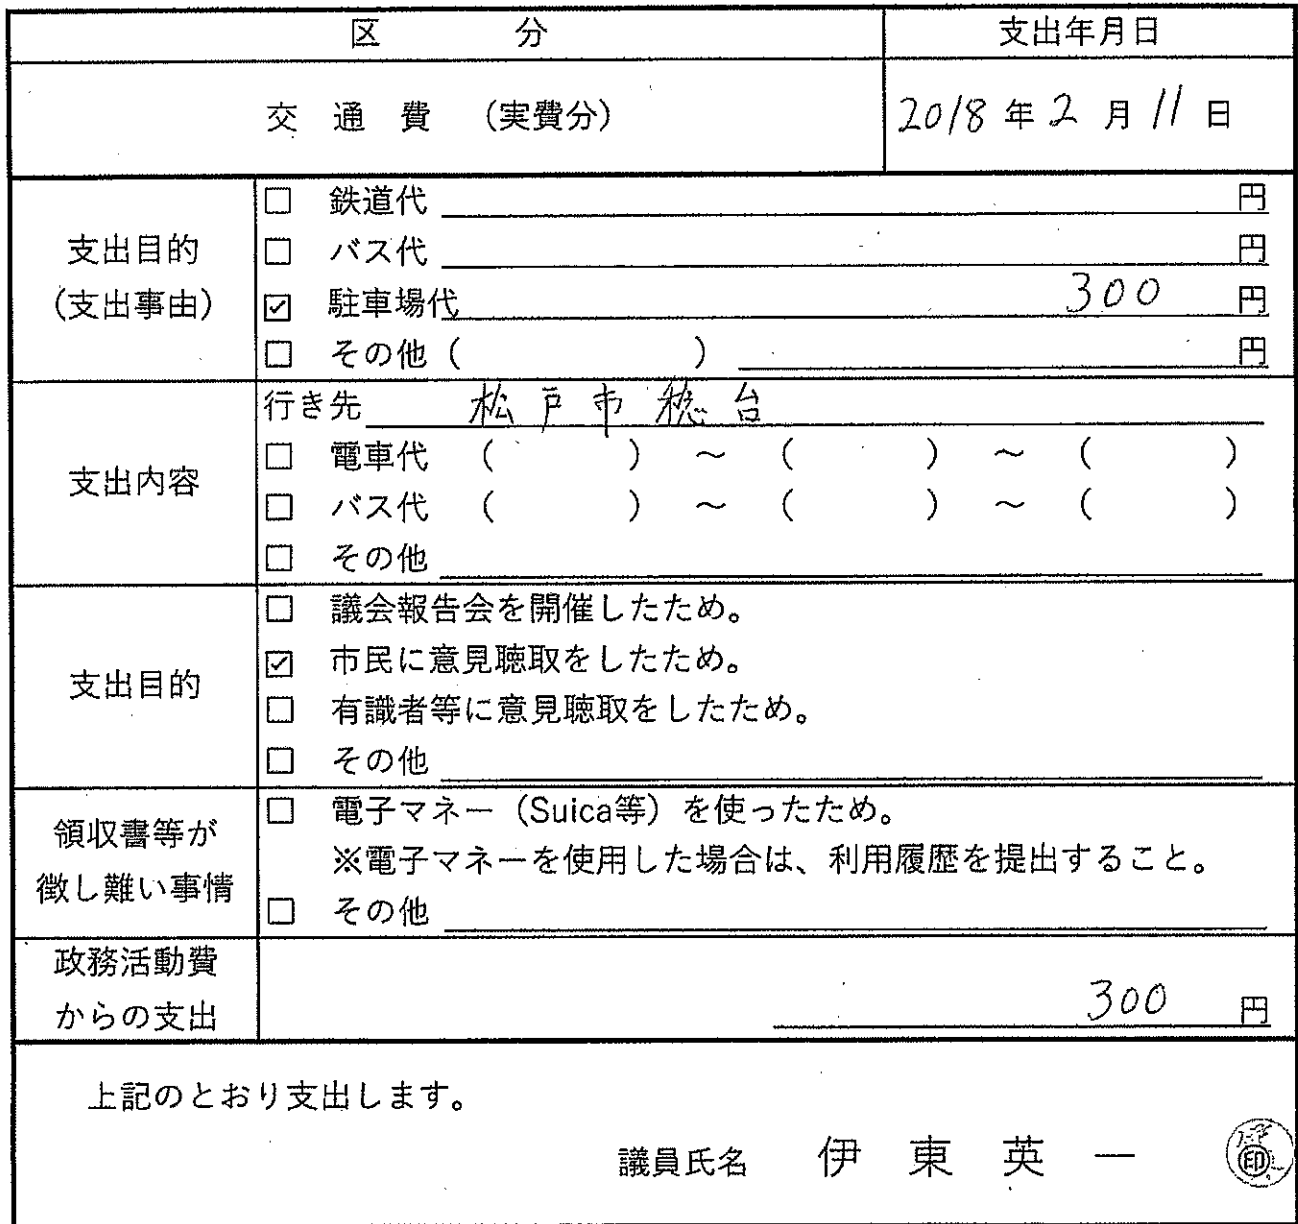 区 分 支出年月日
交通費 (実費分) 2018年2月11日
□ 鉄道代 円
支出目的 □ バス代 円
(支出事由) ☑ 駐車場代 300 円
□ その他 ( ) 円
行き先 松戸市稔台
支出内容 □ 電車代 ( ) ～ ( ) ～ ( )
□ バス代 ( ) ～ ( ) ～ ( )
□ その他
□ 議会報告会を開催したため。
支出目的 ☑ 市民に意見聴取をしたため。
□ 有識者等に意見聴取をしたため。
□ その他
領収書等が □ 電子マネー（Suica等）を使ったため。
徴し難い事情 ※電子マネーを使用した場合は、利用履歴を提出すること。
□ その他
政務活動費
からの支出 300 円
上記のとおり支出します。
議員氏名 伊東英一 印